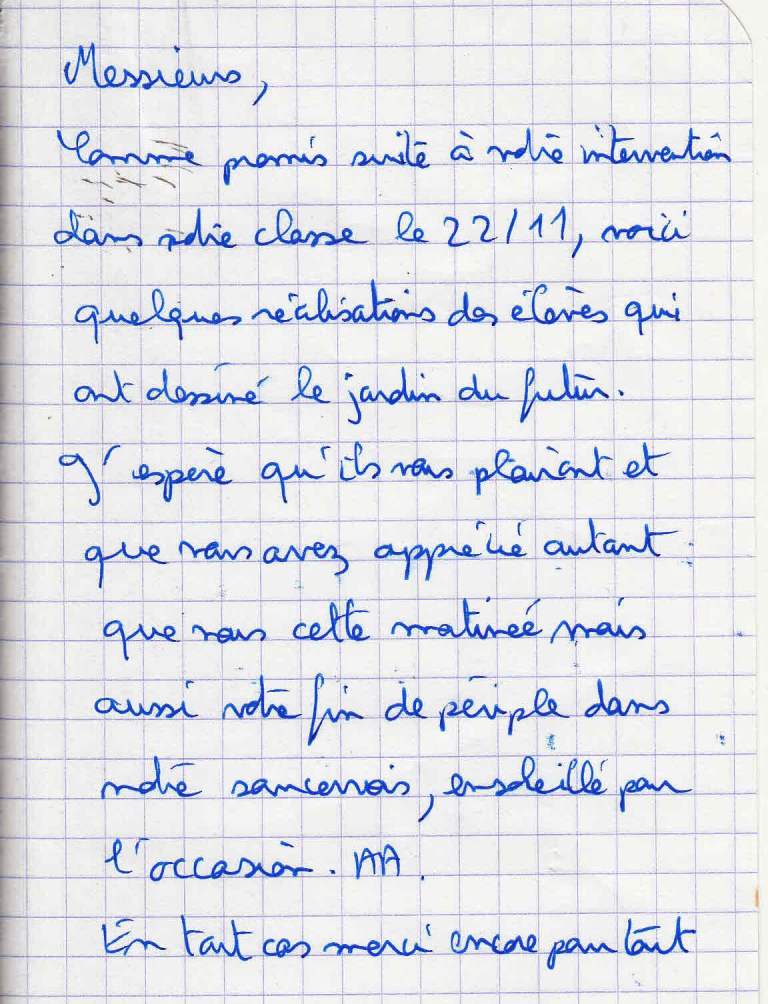 Messieurs,
Comme promis suite à votre intervention
dans notre classe le 22/11, voici
quelques réalisations des élèves qui
ont dessiné le jardin du futur.
J'espère qu'ils vous plairont et
que vous avez apprécié autant
que nous cette matinée mais
aussi votre fin de périple dans
notre sancerrois, ensoleillé pour
l'occasion. AA.
En tout cas merci encore pour tout